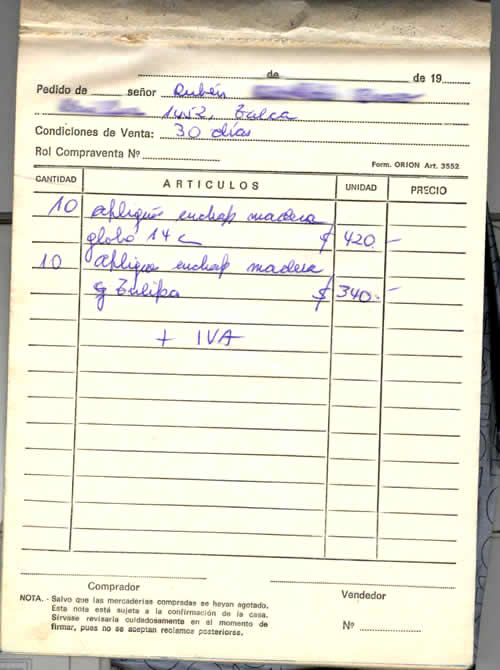 de de 19
Pedido de señor Rubén
1452, Talca
Condiciones de Venta: 30 días
Rol Compraventa Nº
Form. ORION Art. 3552
CANTIDAD ARTICULOS UNIDAD PRECIO
10 apliques enchap madera
globo 14 c $ 420.-
10 apliques enchap madera
Tulipa $ 340.-
+ IVA
Comprador Vendedor
NOTA. - Salvo que las mercaderías compradas se hayan agotado.
Esta nota está sujeta a la confirmación de la casa.
Sírvase revisarla cuidadosamente en el momento de
firmar, pues no se aceptan reclamos posteriores.
Nº